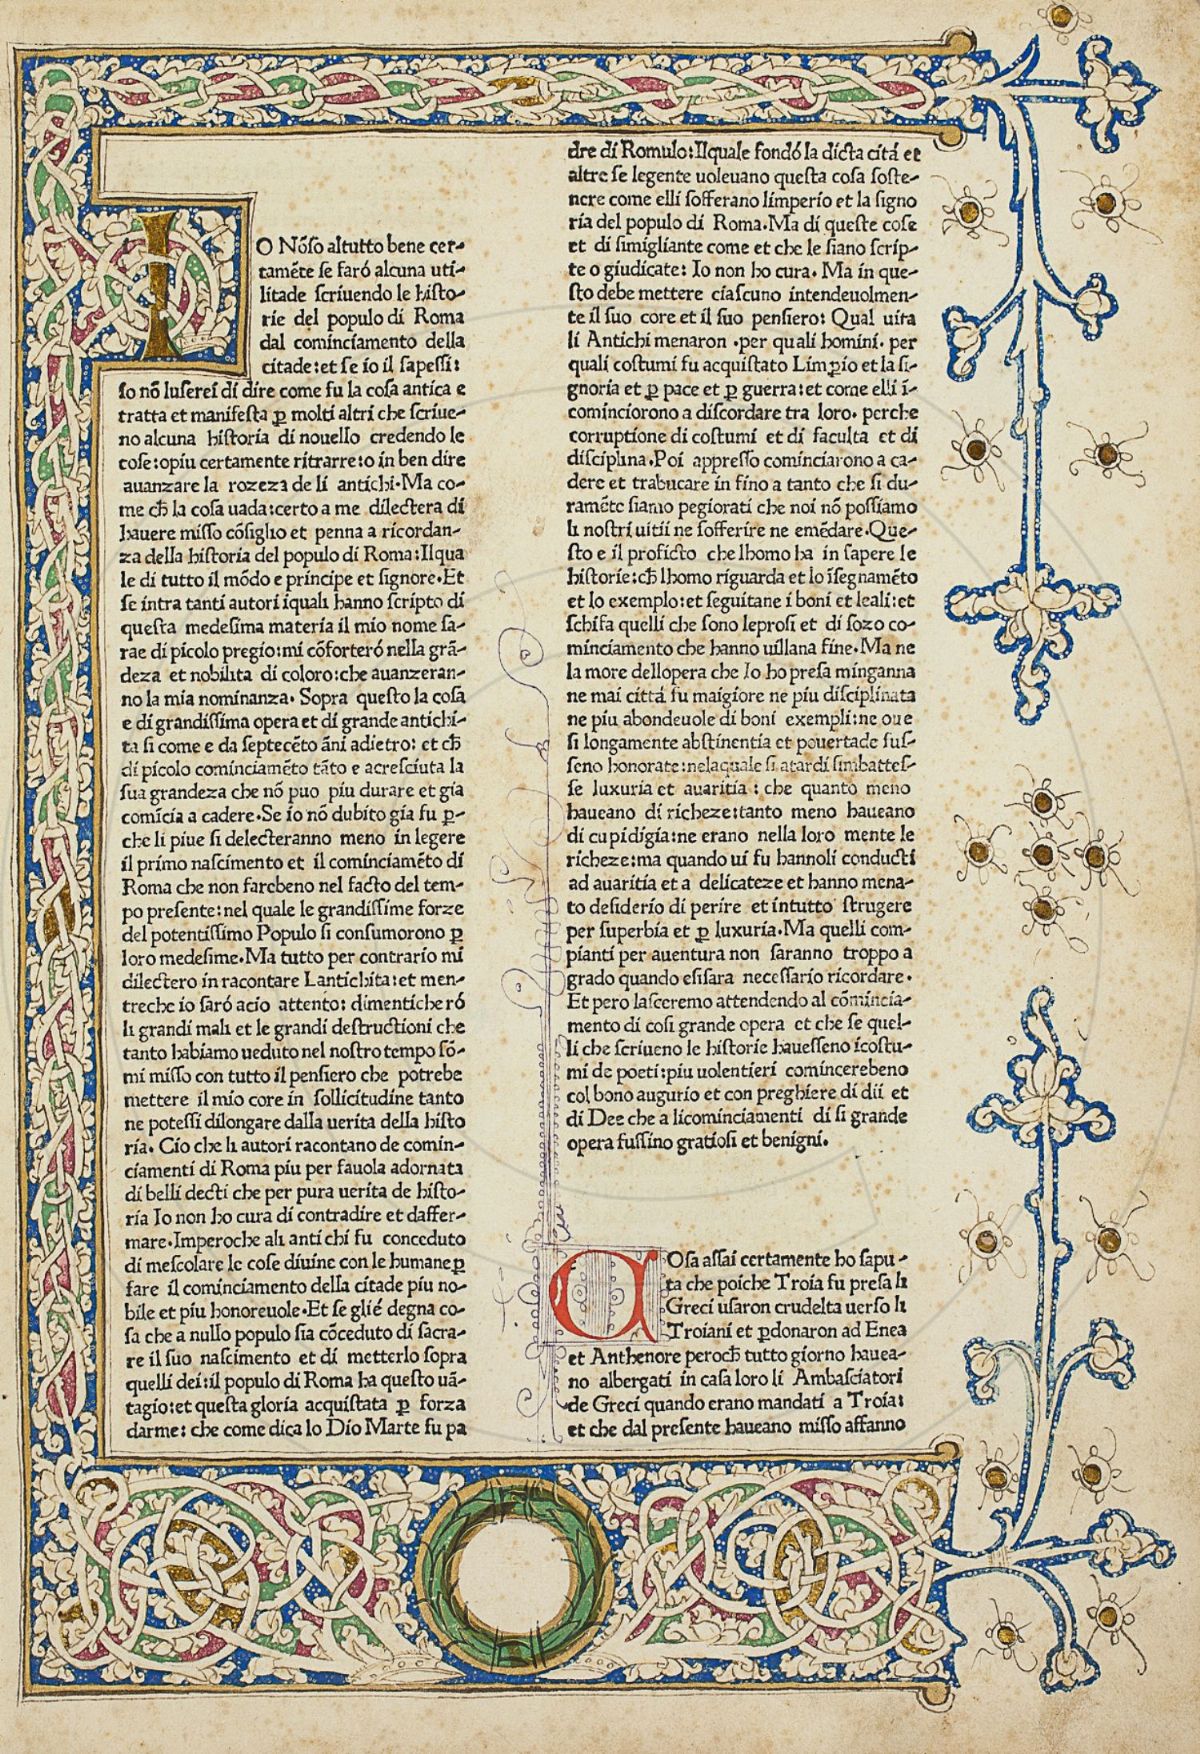 I
O Nõso altutto bene cer-
tamẽte se faró alcuna uti-
litade scriuendo le histo-
rie del populo di Roma
dal cominciamento della
citade: et se io il sapessi:
Io nõ luserei di dire come fu la cosa antica e
tratta et manifesta ꝑ molti altri che scriue-
no alcuna historia di nouello credendo le
cose: opiu certamente ritrarre: o in ben dire
auanzare la rozeza de li antichi. Ma co-
me cħ la cosa uada: certo a me dilectera di
hauere misso cõsiglio et penna a ricordan-
za della historia del populo di Roma: Ilqua
le di tutto il mõdo e principe et signore. Et
se intra tanti autori iquali hanno scripto di
questa medesima materia il mio nome sa-
rae di picolo pregio: mi cõforteró nella grã-
deza et nobilita di coloro: che auanzeran-
no la mia nominanza. Sopra questo la cosa
e di grandissima opera et di grande antichi-
ta si come e da septecẽto ãni adietro: et cħ
di picolo cominciamẽto tãto e acresciuta la
sua grandeza che nõ puo piu durare et gia
comĩcia a cadere. Se io nõ dubito gia fu ꝑ-
che li piue si delecteranno meno in legere
il primo nascimento et il cominciamẽto di
Roma che non farebeno nel facto del tem-
po presente: nel quale le grandissime forze
del potentissimo Populo si consumorono ꝑ
loro medesime. Ma tutto per contrario mi
dilectero in racontare Lantichita: et men-
treche io saró acio attento: dimentiche ró
li grandi mali et le grandi destructioni che
tanto habiamo ueduto nel nostro tempo sõ-
mi misso con tutto il pensiero che potrebe
mettere il mio core in sollicitudine tanto
ne potessi dilongare dalla uerita della histo
ria. Cio che li autori racontano de comin-
ciamenti di Roma piu per fauola adornata
di belli decti che per pura uerita de histo-
ria Io non ho cura di contradire et daffer-
mare. Imperoche ali anti chi fu conceduto
di mescolare le cose diuine con le humane ꝑ
fare il cominciamento della citade piu no-
bile et piu honoreuole. Et se glié degna co-
sa che a nullo populo sia cõceduto di sacra-
re il suo nascimento et di metterlo sopra
quelli dei: il populo di Roma ha questo uã-
tagio: et questa gloria acquistata ꝑ forza
darme: che come dica lo Dio Marte fu pa
dre di Romulo: Ilquale fondó la dicta citá et
altre se legente uoleuano questa cosa soste-
nere come elli sofferano limperio et la signo
ria del populo di Roma. Ma di queste cose
et di simigliante come et che le siano scrip-
te o giudicate: Io non ho cura. Ma in que-
sto debe mettere ciascuno intendeuolmen-
te il suo core et il suo pensiero: Qual uita
li Antichi menaron .per quali homini. per
quali costumi fu acquistato Limꝑio et la si-
gnoria et ꝑ pace et ꝑ guerra: et come elli ĩ-
cominciorono a discordare tra loro. perche
corruptione di costumi et di faculta et di
disciplina. Poi appresso cominciarono a ca-
dere et trabucare in fino a tanto che si du-
ramẽte siamo pegiorati che noi nõ possiamo
li nostri uitii ne sofferire ne emẽdare. Que-
sto e il proficto che lhomo ha in sapere le
historie: cħ lhomo riguarda et lo ĩsegnamẽto
et lo exemplo: et seguitane i boni et leali: et
schifa quelli che sono leprosi et di sozo co-
minciamento che hanno uillana fine. Ma ne
la more dellopera che Io ho presa minganna
ne mai cittá fu maigiore ne piu disciplinata
ne piu abondeuole di boni exempli: ne oue
si longamente abstinentia et pouertade fus-
seno honorate: nelaquale si atardi simbattes-
se luxuria et auaritia : che quanto meno
haueano di richeze: tanto meno haueano
di cupidigia: ne erano nella loro mente le
richeze: ma quando ui fu hannoli conducti
ad auaritia et a delicateze et hanno mena-
to desiderio di perire et intutto strugere
per superbia et ꝑ luxuria. Ma quelli com-
pianti per auentura non saranno troppo a
grado quando esisara necessario ricordare.
Et pero lasceremo attendendo al cõmincia-
mento di cosi grande opera et che se quel-
li che scriueno le historie hauesseno ĩcostu-
mi de poeti: piu uolentieri comincerebeno
col bono augurio et con preghiere di dii et
di Dee che a licominciamenti di si grande
opera fussino gratiosi et benigni.
C
Osa assai certamente ho sapu-
ta che poiche Troia fu presa li
Greci usaron crudelta uerso li
Troiani et ꝑdonaron ad Enea
et Anthenore perocħ tutto giorno hauea-
no albergati in casa loro li Ambasciatori
de Greci quando erano mandati a Troia:
et che dal presente haueano misso affanno